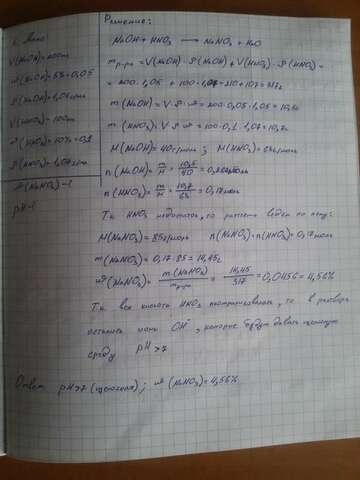 Дано:
V(NaOH)=200мл
ω(NaOH)=5%=0,05
ρ(NaOH)=1,05г/мл
V(HNO₃)=100мл
ω(HNO₃)=10%=0,1
ρ(HNO₃)=1,07г/мл
ω(NaNO₃)-?
pH-?
Решение:
NaOH + HNO₃ → NaNO₃ + H₂O
m р-ра = V(NaOH)·ρ(NaOH) + V(HNO₃)·ρ(HNO₃) =
= 200·1,05 + 100·1,07 = 210+107 = 317г
m(NaOH) = V·ρ·ω = 200·0,05·1,05 = 10,5г
m(HNO₃) = V·ρ·ω = 100·0,1·1,07 = 10,7г
M(NaOH) = 40г/моль ; M(HNO₃) = 63г/моль
n(NaOH) = m/M = 10,5/40 = моль
n(HNO₃) = m/M = 10,7/63 = 0,17моль
Т.к. HNO₃ недостаток, то расчёт ведём по нему:
M(NaNO₃) = 85г/моль n(NaNO₃) = n(HNO₃) = 0,17моль
m(NaNO₃) = 0,17·85 = 14,45г
ω(NaNO₃) = m(NaNO₃)/m р-ра = 14,45/317 = 0,0456 = 4,56%
Т.к. вся кислота HNO₃ то в растворе
остались ионы OH⁻, которые будут давать щелочную
среду pH >7
Ответ: pH>7 (щелочная) ; ω(NaNO₃)=4,56%